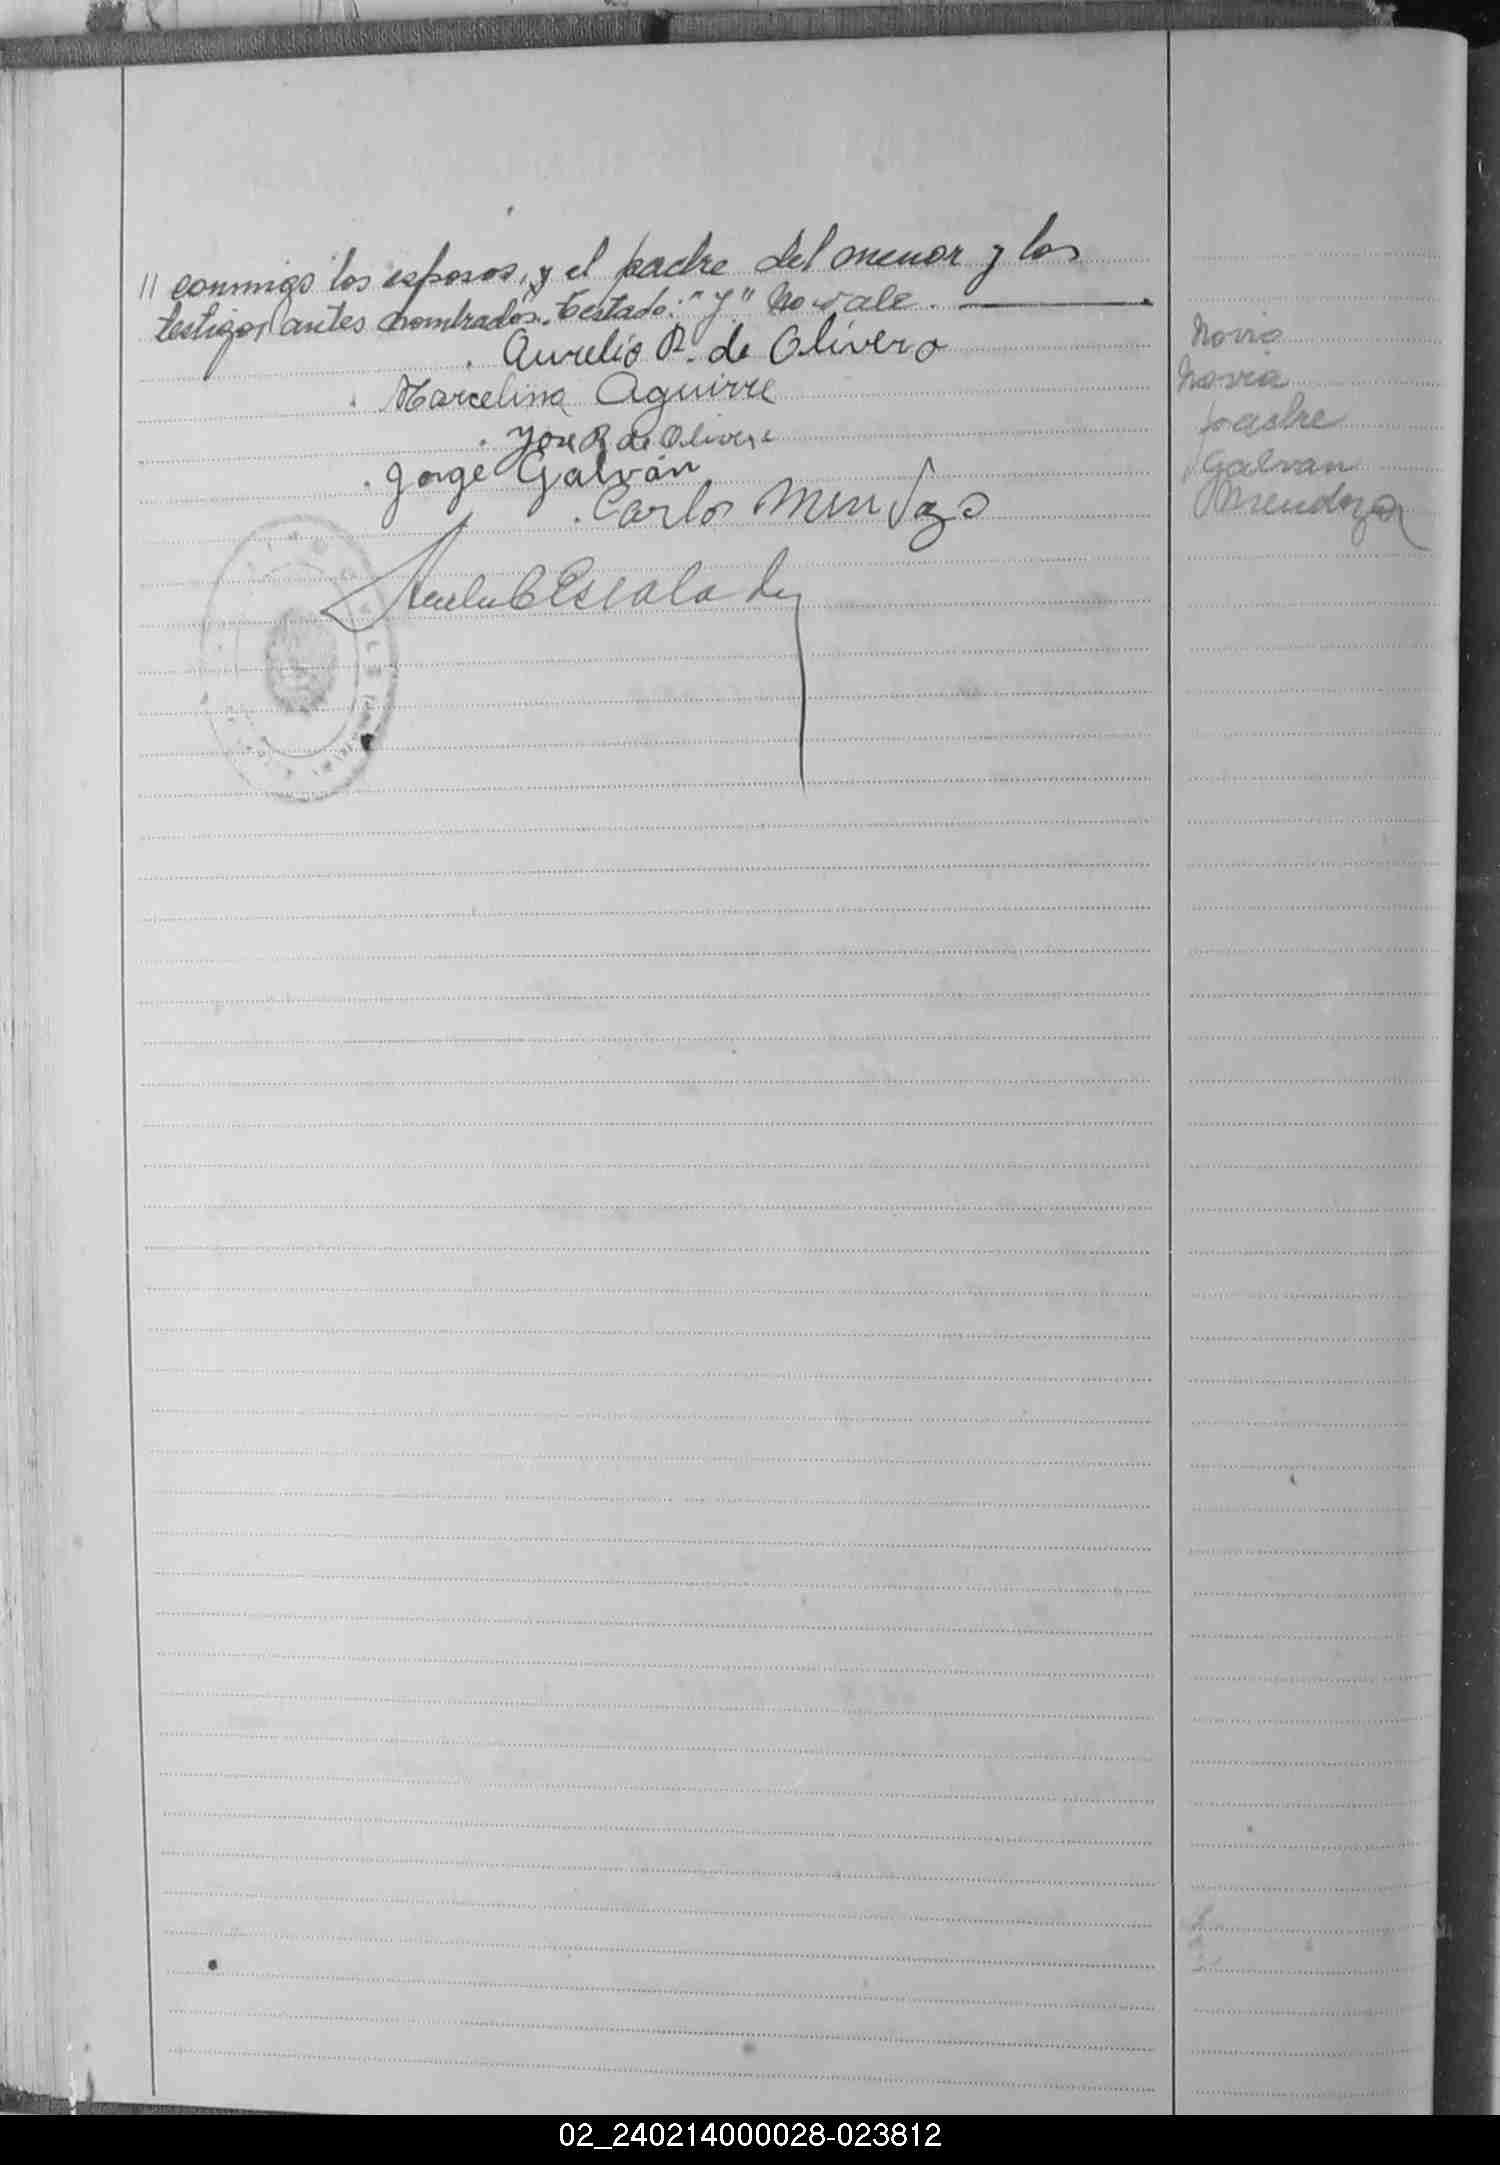 // conmigo los esposos, y el padre del menor y los
testigos antes nombrados. Testado: "y" No vale.
Aurelio R. de Olivera
Novio
Marcelina Aguirre
Novia
Jose R de Olivera
padre
Jorge Galván
Galvan
Carlos Mendoza
Mendoza
Escalada
02_240214000028-023812